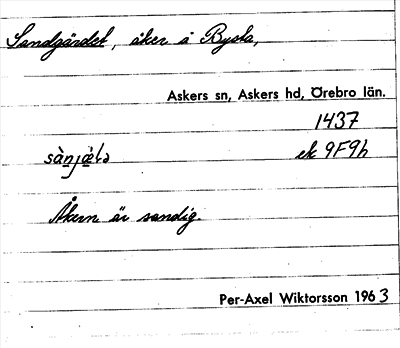 Sandgärdet, åker å Bysta,
Askers sn, Askers hd, Örebro län.
1437
ek 9F9h
Åkern är sandig.
Per-Axel Wiktorsson 1963